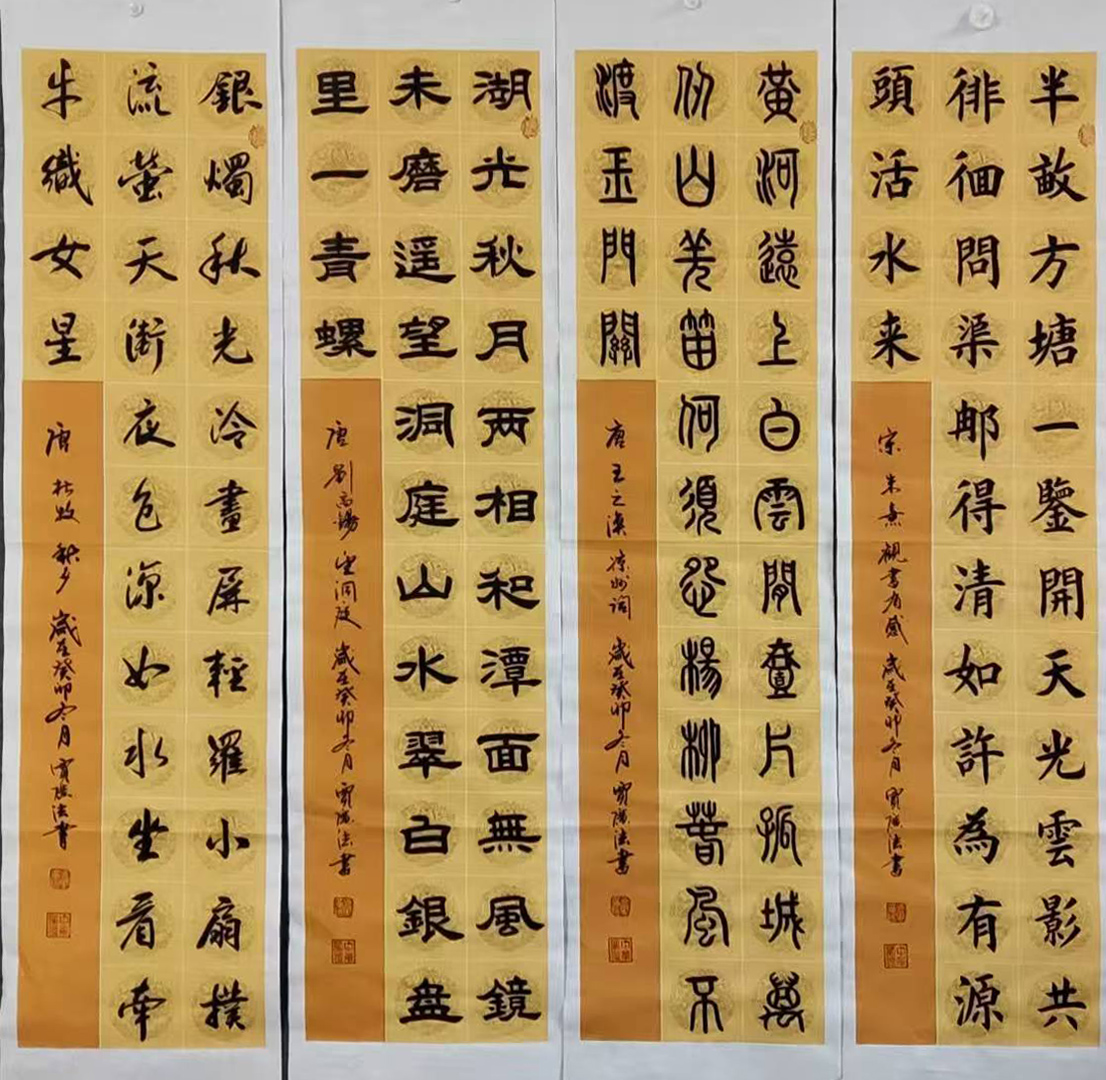 半畝方塘一鑒開天光雲影共
徘徊問渠那得清如許為有源
頭活水来
宋 朱熹 觀書有感 歲在癸卯冬月 法書
黄河遠上白雲間壹片孤城萬
仞山羌笛何須怨楊柳春風不
渡玉門關
唐 王之渙 凉州词 歲在癸卯冬月 法書
湖光秋月两相和潭面無風鏡
未磨遥望洞庭山水翠白銀盘
里一青螺
唐 劉禹錫 望洞庭 歲在癸卯冬月 法書
銀燭秋光冷畫屏輕羅小扇撲
流螢天街夜色凉如水坐看牵
牛織女星
唐 杜牧 秋夕 歲在癸卯冬月 法書